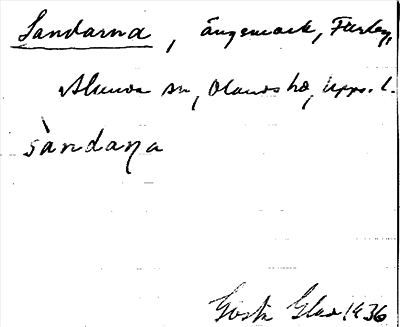 Sandarna, ängsmark, Färley,
Alunda sn, Olands hd, Upps. l.
sàndaṇa
Gösta Glas 1936